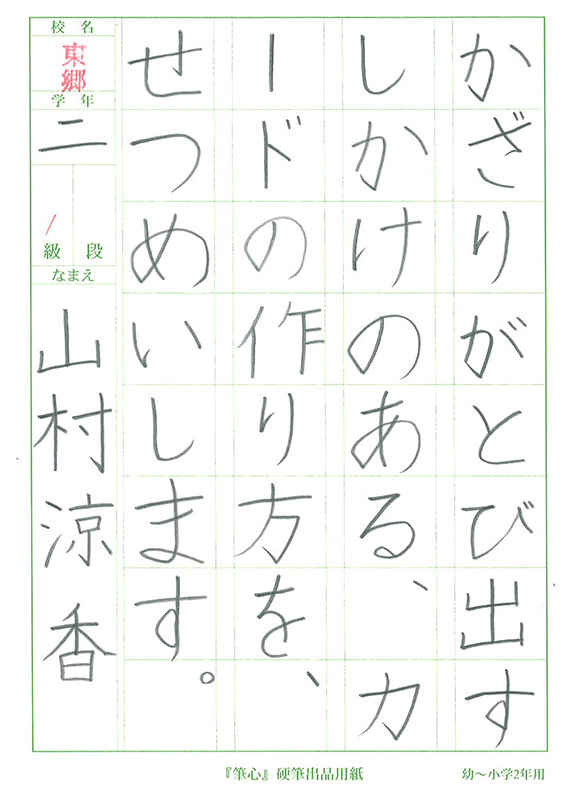 かざりがとび出す
しかけのある、カ
ードの作り方を、
せつめいします。
校名
東郷
学年
二
級 段
1
なまえ
山村涼香
『筆心』硬筆出品用紙
幼～小学2年用